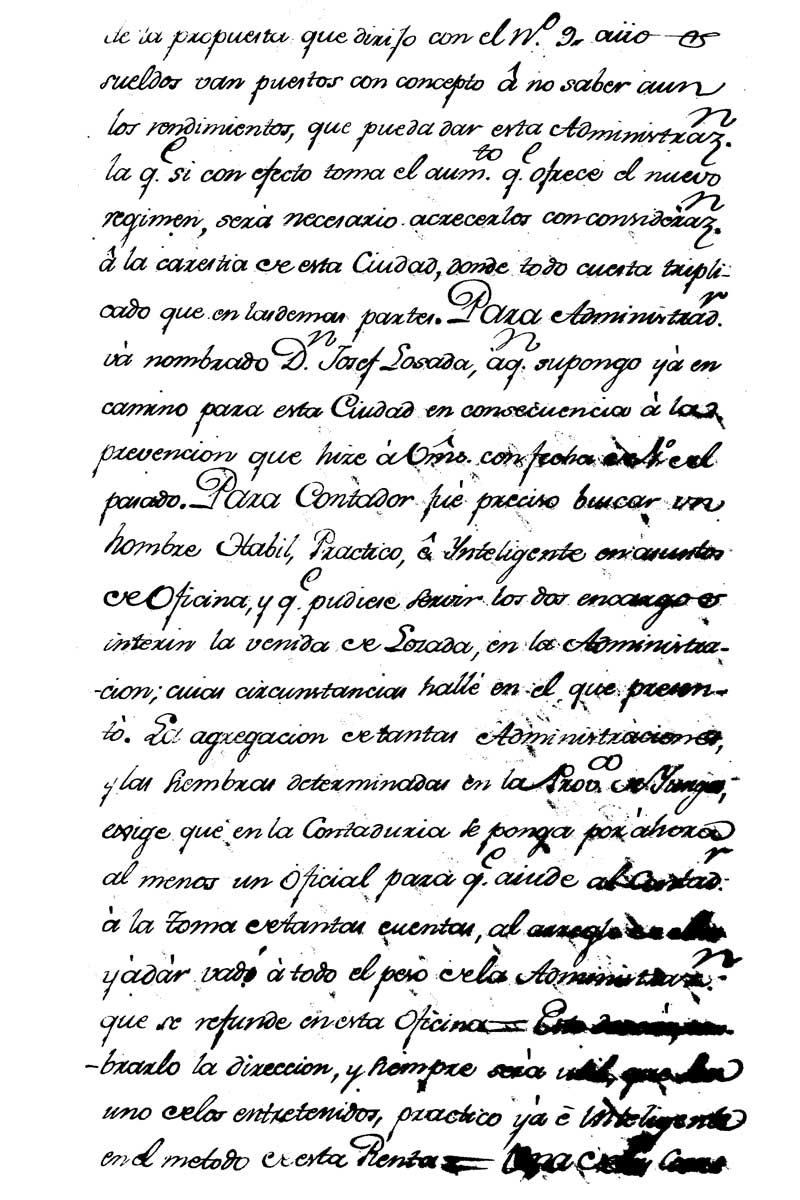 de la propuesta que dirijo con el N.º 9. cuio os
sueldos van puestos con concepto â no saber aun
los rendimientos, que pueda dar esta Administraz.n
la q.e si con efecto toma el aum.to q.e ofrece el nuevo
regimen, serà necesario acrecerlos con consideraz.n
â la carestia de esta Ciudad, donde todo cuesta tripli-
cado que en las demas partes. Para Administrad.r
và nombrado D.n Josef Losada, àq.n supongo yà en
camino para esta Ciudad en consecuencia à la
prevencion que hize à Vmẽ. con fecha de 1º del
pasado. Para Contador fué preciso buscar un
hombre Habil, Practico, ê Ynteligente en asuntos
de Oficina, y q.e pudiese servir los dos encargos
interin la venida de Lozada, en la Administra-
-cion; cuias circunstancias hallé en el que presen-
tò. La agregacion de tantas Administraciones,
y las siembras determinadas en la Prov.a de Yungas,
exige que en la Contaduria se ponga por ahora
al menos un Oficial para q.e aiude al Contad.r
à la toma de tantas cuentas, al arreglo de ellas
y à dàr vado à todo el peso de la Administraz.n
que se refunde en esta Oficina = Este
-brarlo la direccion, y siempre serà util, que sea
uno de los entretenidos, practico yà ê Inteligente
en el metodo de esta Renta =